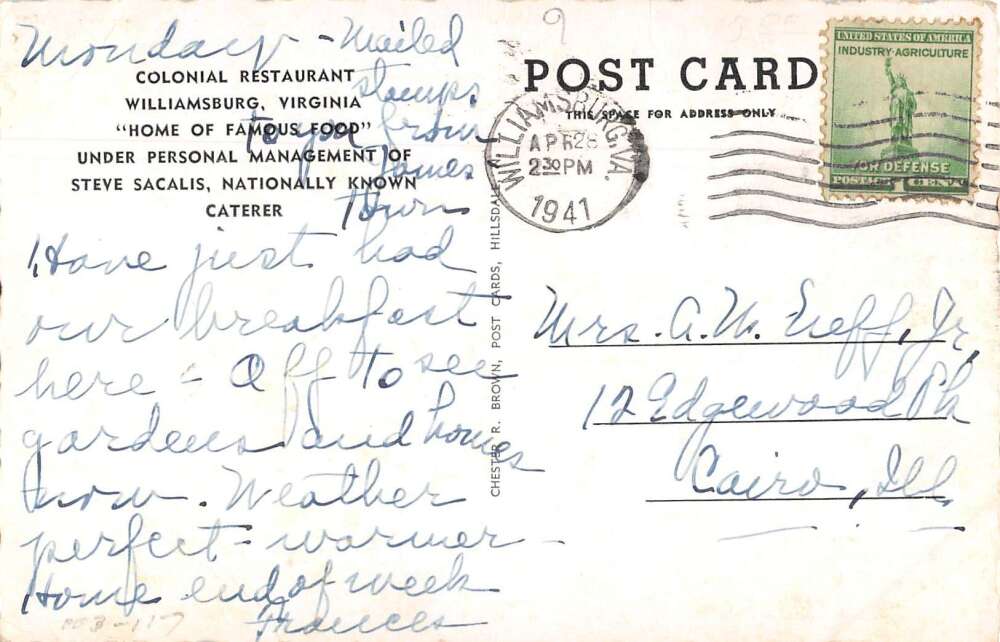 Monday - Mailed
stamps
to you from
James
town
COLONIAL RESTAURANT
WILLIAMSBURG, VIRGINIA
"HOME OF FAMOUS FOOD"
UNDER PERSONAL MANAGEMENT OF
STEVE SACALIS, NATIONALLY KNOWN
CATERER
Have just had
our breakfast
here - Off to see
gardens and homes
now. Weather
perfect - warmer -
Home end of week
Frances
CHESTER R. BROWN, POST CARDS, HILLSDALE
9
POST CARD
THIS SPACE FOR ADDRESS ONLY
WILLIAMSBURG, VA.
APR 28
2 30 PM
1941
UNITED STATES OF AMERICA
INDUSTRY·AGRICULTURE
FOR DEFENSE
POSTAGE 1 CENT
Mrs. A. W. Neff, Jr,
12 Edgewood Pk
Cairo, Ill.